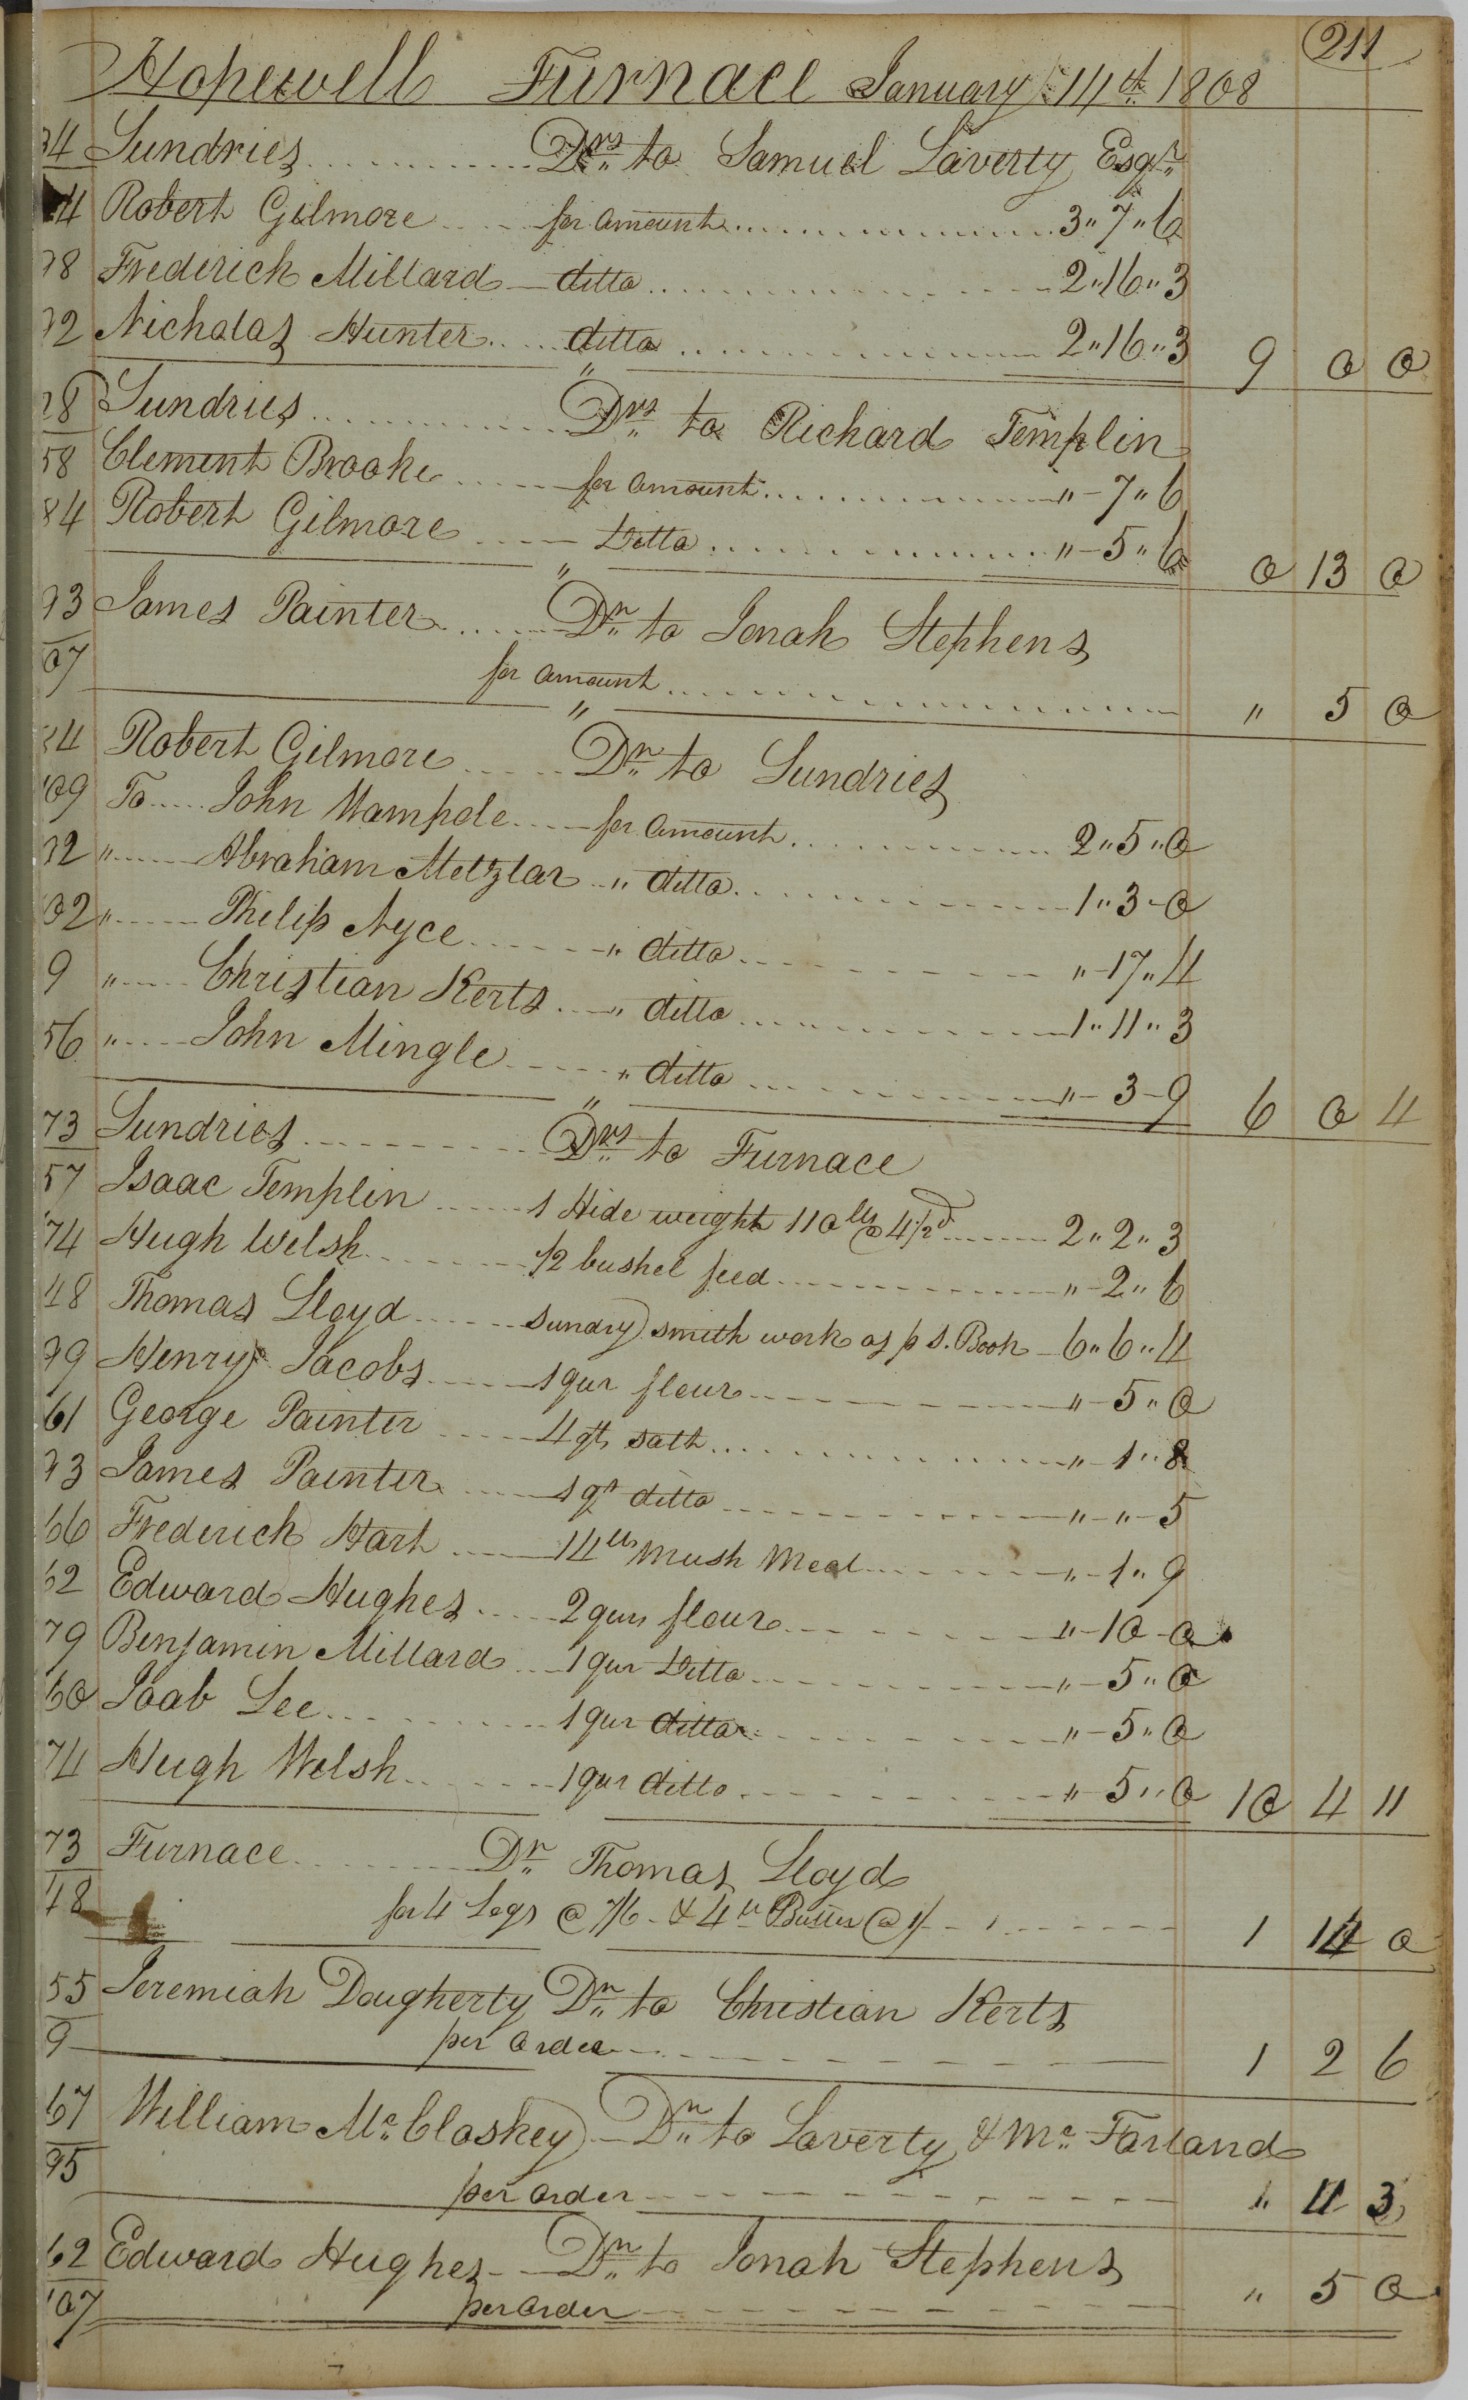 211
Hopewell Furnace January 14th 1808
34 Sundries Drs to Samuel Laverty Esqr
4 Robert Gilmore for amount 3 " 7 " 6
98 Frederick Millard ditto 2 " 16 " 3
92 Nicholas Hunter ditto 2 " 16 " 3 9 0 0
"
28 Sundries Drs to Richard Templin
58 Clement Brooke for amount " - 7 " 6
84 Robert Gilmore Ditto " - 5 " 6 0 13 0
"
93 James Painter Dr to Jonah Stephens
07 for amount " 5 0
"
84 Robert Gilmore Dr to Sundries
109 To John Wampole for amount 2 " 5 " 0
92 " Abraham Metzlar " ditto 1 " 3 - 0
102 " Philip Nyce " ditto " - 17 " 4
9 " Christian Kerts " ditto 1 " 11 " 3
56 " John Mingle " ditto " - 3 - 9 6 0 4
"
73 Sundries Drs to Furnace
57 Isaac Templin 1 Hide weight 110 lbs @ 4 1/2d 2 " 2 " 3
74 Hugh Welsh 1/2 bushel feed " - 2 " 6
48 Thomas Lloyd sundry smith work as p S. Book 6 " 6 " 4
99 Henry Jacobs 1 qur flour " - 5 " 0
61 George Painter 4 qts salt " - 1 " 8
93 James Painter 1 qt ditto " - " - 5
66 Frederick Hart 14 lbs Mush Meal " - 1 " 9
62 Edward Hughes 2 qurs flour " - 10 - 0
79 Benjamin Millard 1 qur Ditto " - 5 " 0
60 Joab Lee 1 qur ditto " - 5 " 0
74 Hugh Welsh 1 qur ditto " - 5 " 0 10 4 11
73 Furnace Dr Thomas Lloyd
48 for 4 Legs @ 7/6 & 4 lb Butter @ 1/ 1 14 0
55 Jeremiah Dougherty Dr to Christian Kerts
9 per order 1 2 6
67 William Mc Closkey Dr to Laverty & Mc Farland
95 per order " 11 3
62 Edward Hughes Dr to Jonah Stephens
107 per order " 5 0